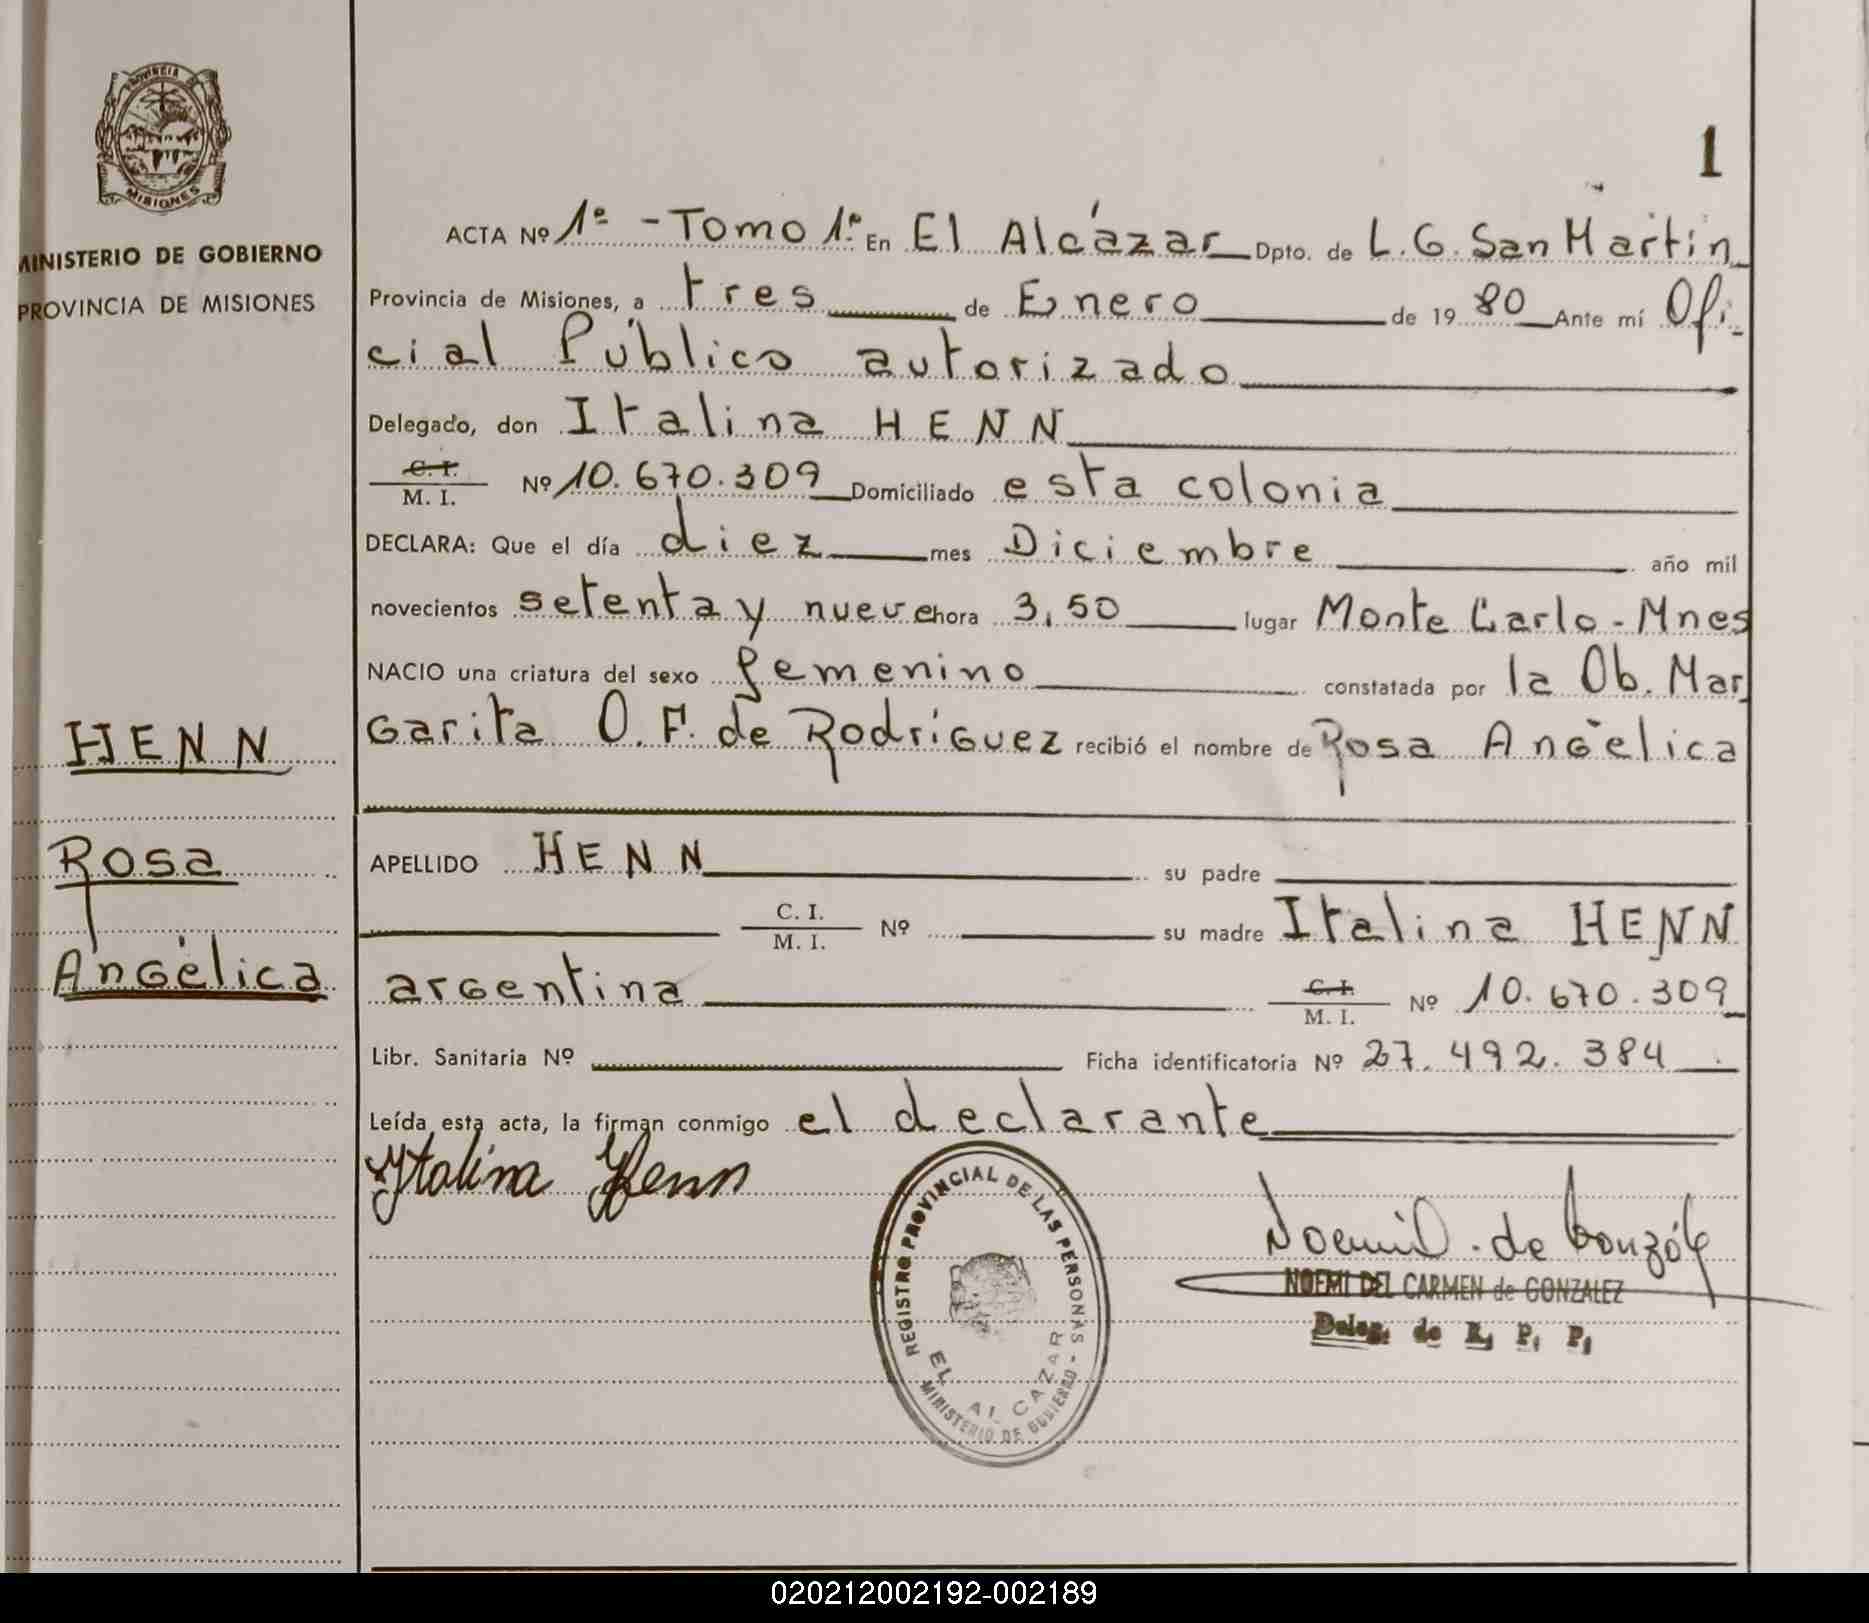 PROVINCIA DE
MISIONES
MINISTERIO DE GOBIERNO
PROVINCIA DE MISIONES
HENN
Rosa
Angélica
1
ACTA Nº 1º - Tomo 1º En El Alcázar Dpto. de L. G. San Martín
Provincia de Misiones, a tres de Enero de 1980 Ante mí Ofi-
cial Público autorizado
Delegado, don Italina HENN
C. I. M. I. Nº 10.670.309 Domiciliado esta colonia
DECLARA: Que el día diez mes Diciembre año mil
novecientos setenta y nueve hora 3,50 lugar Monte Carlo - Mnes
NACIO una criatura del sexo femenino constatada por la Ob. Mar
garita O. F. de Rodríguez recibió el nombre de Rosa Angélica
APELLIDO HENN su padre
C. I. M. I. Nº su madre Italina HENN
argentina C. I. M. I. Nº 10.670.309
Libr. Sanitaria Nº Ficha identificatoria Nº 27.492.384
Leída esta acta, la firman conmigo el declarante
Ytalina Henn
REGISTRO PROVINCIAL DE LAS PERSONAS -
EL ALCAZAR
MINISTERIO DE GOBIERNO
Noemi D. de Gonzále
NOEMI DEL CARMEN de GONZALEZ
Deleg. de R. P. P.
020212002192-002189